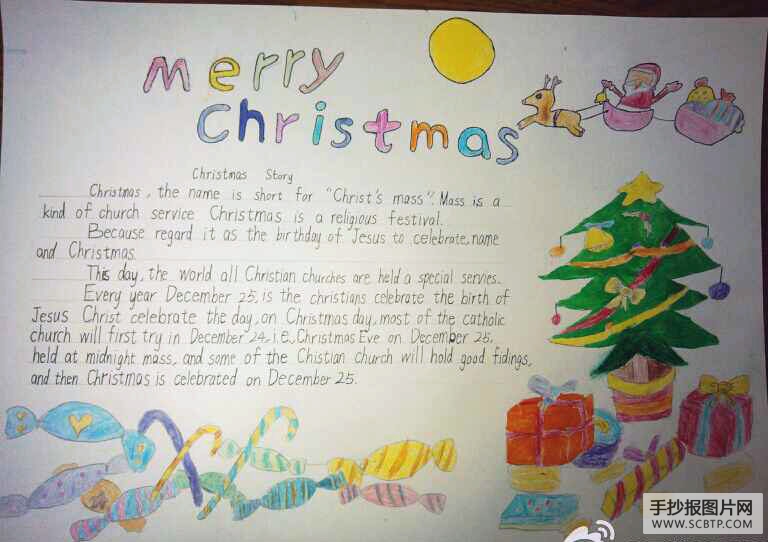 merry
Christmas
Christmas Story
Christmas, the name is short for "Christ's mass". Mass is a
kind of church service Christmas is a religious festival.
Because regard it as the birthday of Jesus to celebrate, name
and Christmas.
This day, the world all Christian churches are held a special servies.
Every year December 25, is the christians celebrate the birth of
Jesus Christ celebrate the day, on Christmas day, most of the catholic
church will first try in December 24, i.e. Christmas Eve on December 25.
held at midnight mass, and some of the Chistian church will hold good fidings,
and then Christmas is celebrated on December 25.
手抄报图片网
WWW.SCBTP.COM